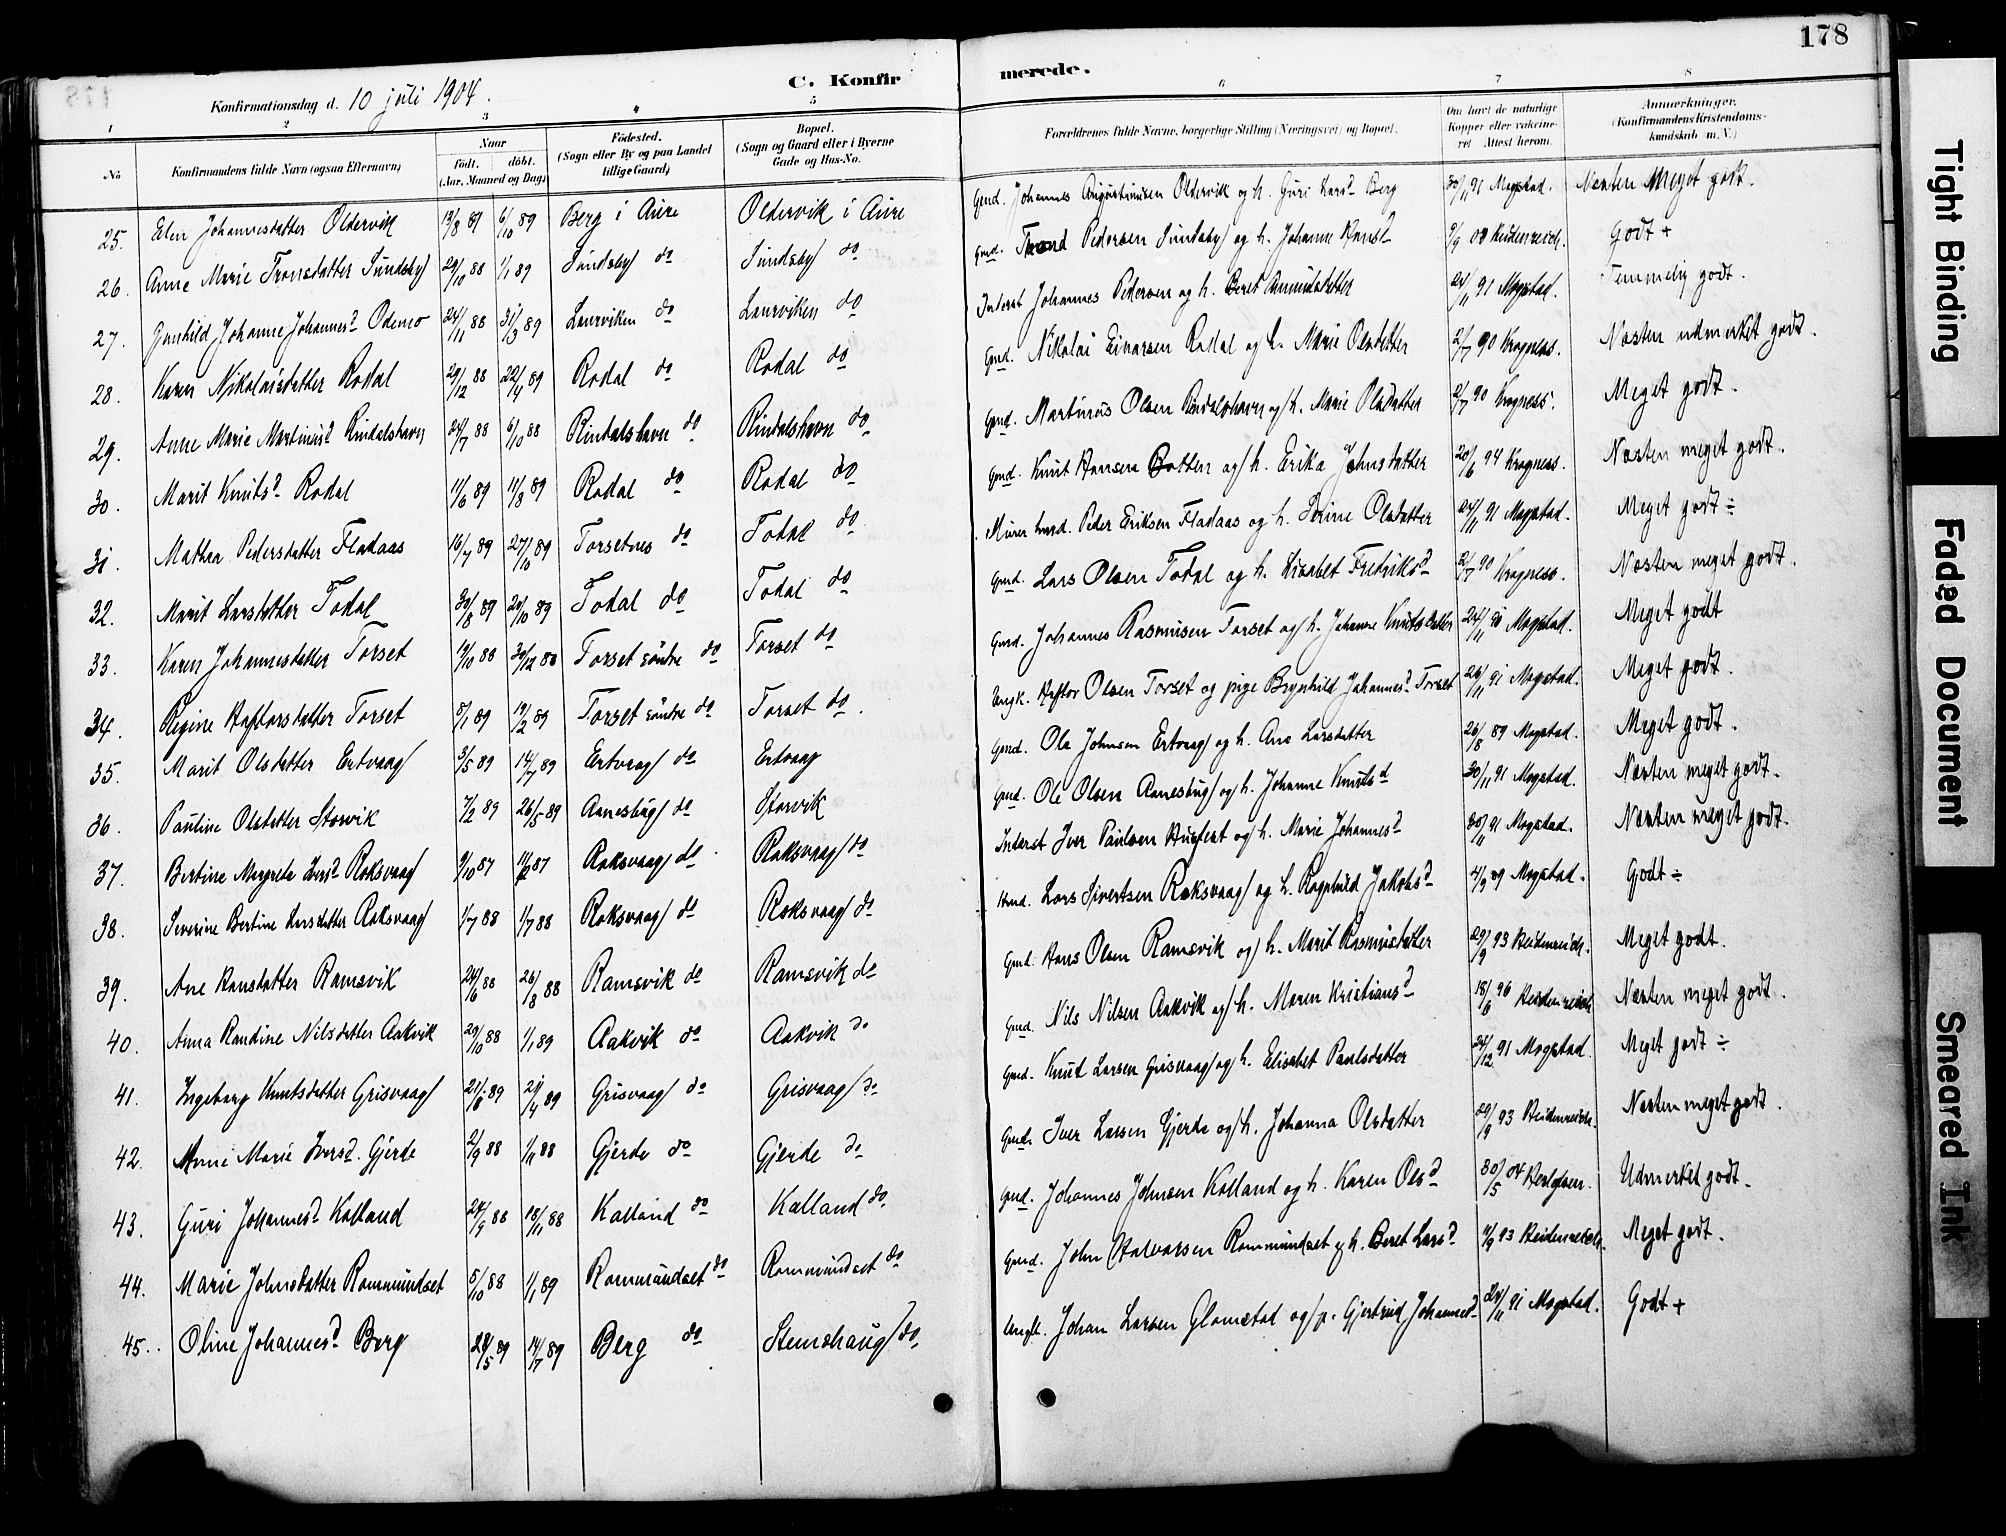 178
C. Konfirmerede.
Konfirmationsdag d. 10 juli 1904.
1 2 3 4 5 6 7 8
No Konfirmandens fulde Navn (ogsaa Efternavn) Naar Födt. döbt. (Aar, Maaned og Dag) Födested. (Sogn eller By og paa Landet tillige Gaard) Bopæl. (Sogn og Gaard eller i Byerne Gade og Hus-No. Forældrenes fulde Navne, borgerlige Stilling (Næringsvei) og Bopæl. Om havt de naturlige Kopper eller vaccineret Attest herom. Anmærkninger. (Konfirmandens Kristendomskundskab m. V.)
25. Elen Johannesdatter Oldervik 13/8 89 6/10 89 Berg i Aure Oldervik i Aure Gmd. Johannes Augustinusen Oldervik og h. Guri Larsd Berg 30/11 91 Mogstad. Næsten Meget godt.
26. Anne Marie Tronsdatter Sundsby 29/10 88 1/1 89 Sundsby do Sundsby do Gmd. Trond Pedersen Sundsby og h. Johanne Hansd Heidenreich. Godt +
27. Gunhild Johanne Johannesd Odemo 24/11 88 31/3 89 Laurviken do Laurviken do Inderst Johannes Pedersen og h. Beret Amundsdatter 24/11 91 Mogstad. Temmelig godt.
28. Karen Nikolaisdatter Rodal 29/12 88 22/4 89 Rodal do Rodal do Gmd. Nikolai Einarsen Rodal og h. Marie Olsdatter 2/7 90 Krogness. Næsten udmerket godt.
29. Anne Marie Martinusd Rindalshavn 24/7 88 6/10 88 Rindalshavn do Rindalshavn do Gmd. Martinus Olsen Rindalshavn og h. Marie Olsdatter 2/7 90 Krogness. Meget godt.
30. Marit Knutsd Rodal 11/6 89 11/8 89 Rodal do Rodal do Gmd. Knut Hansen Botten og h. Erika Johnsdatter 20/6 94 Krogness. Næsten meget godt.
31. Mathea Pedersdatter Fladaas 16/7 89 27/10 89 Torsetnes do Todal do Murer Peder Eriksen Fladaas og h. Serine Olsdatter 24/11 91 Mogstad. Meget godt ÷
32. Marit Larsdatter Todal 30/8 89 20/10 89 Todal do Todal do Gmd. Lars Olsen Todal og h. Lisabet Fredriksd 2/7 90 Krogness. Næsten meget godt.
33. Karen Johannesdatter Torset 19/10 88 30/12 88 Torset söndre do Torset do Gmd. Johannes Rasmusen Torset og h. Johanne Knutsdatter 24/11 91 Mogstad. Meget godt
34. Regine Haftorsdatter Torset 8/1 89 19/2 89 Torset söndre do Torset do. Ungk. Haftor Olsen Torset og pige Brynhild Johannesd Torset 24/11 91 Mogstad. Meget godt.
35. Marit Olsdatter Ertvaag 3/5 89 14/7 89 Ertvaag do Ertvaag Gmd. Ole Johnsen Ertvaag og h. Ane Larsdatter 26/8 89 Mogstad. Meget godt.
36. Pauline Olsdatter Storvik 7/2 89 26/5 89 Aanesbug do Storvik Gmd. Ole Olsen Aanesbug og h. Johanne Knutsd 30/11 91 Mogstad. Næsten meget godt.
37. Bertine Margrete Iversd Roksvaag 9/10 87 87 Roksvaag do Roksvaag do Inderst Iver Paulsen og h. Marie Johannesd 30/11 91 Mogstad. Næsten meget godt.
38. Severine Bertine Larsdatter Roksvaag 1/7 88 1/7 88 Roksvaag do Roksvaag do Lars Sivertsen Roksvaag og h. Ragnhild Jakobsd 4/9 89 Mogstad. Godt ÷
39. Ane Hansdatter Ramsvik 24/6 88 26/8 88 Ramsvik do Ramsvik do Gmd. Hans Olsen Ramsvik og h. Marit Rasmusdatter 29/9 93 Heidenreich. Meget godt.
40. Anna Randine Nilsdatter Aakvik 29/10 88 1/1 89 Aakvik do Aakvik do Gmd. Nils Nilsen Aakvik og h. Maren Kristiansd 18/6 96 Heidenreich Næsten meget godt.
41. Ingeborg Knutsdatter Grisvaag 89 21/4 89 Grisvaag do Grisvaag do Gmd. Knut Larsen Grisvaag og h. Elisabet Paulsdatter 24/12 91 Mogstad Meget godt ÷
42. Anne Marie Iversd. Gjerde 2/9 88 1/11 88 Gjerde do Gjerde do Gmd. Iver Larsen Gjerde og h. Johanna Olsdatter 29/9 93 Heidenreich. Næsten meget godt.
43. Guri Johannesd Kalland 24/9 88 18/11 88 Kalland do Kalland do Gmd. Johannes Johnsen Kalland og h. Karen Olsd 30/5 04 Udmerket godt.
44. Marie Johnsdatter Rommundset 5/10 88 1/1 89 Rommundset do Rommundset do Gmd. John Halvorsen Rommundset og h. Beret Larsd 93 Heidenreich. Meget godt.
45. Oline Johannesd Berg 28/5 89 14/7 89 Berg do Stemshaug do. Ungk. Johan Larsen Glomstad og p. Gjertrud Johannesd 24/11 91 Mogstad. Godt +
Tight Binding
Faded Document
Smeared Ink